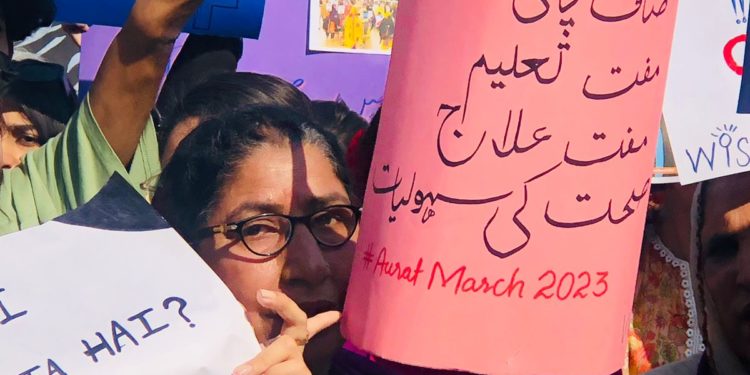 صاف پانی
مفت تعلیم
مفت علاج
صحت کی سہولیات
#Aurat March 2023
HAI?
WIS